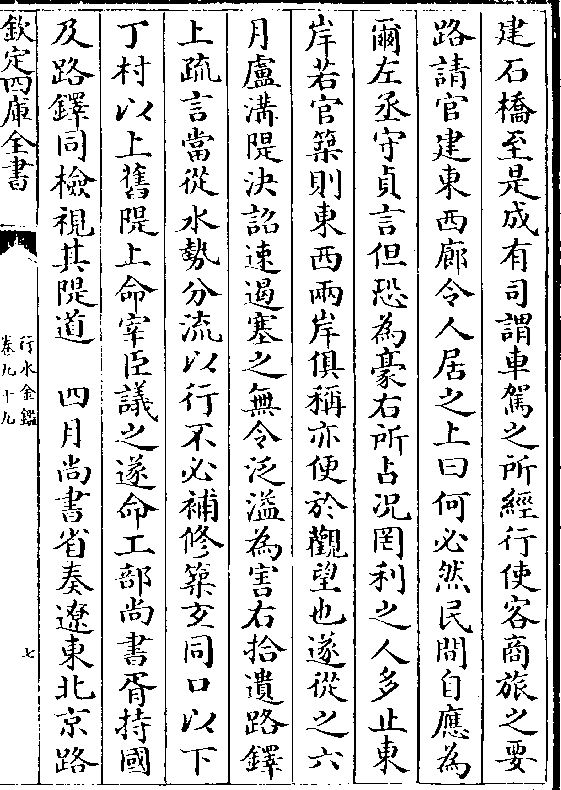 建石橋至是成有司謂車駕之所經行使客商旅之要
路請官建東西廊令人居之上曰何必然民間自應為
爾左丞守貞言但恐為豪右所占况罔利之人多止東
岸若官築則東西兩岸俱稱亦便於觀望也遂從之六
月盧溝隄決詔速遏塞之無令泛溢為害右拾遺路鐸
上疏言當從水勢分流以行不必補修築玄同口以下
丁村以上舊隄上命宰臣議之遂命工部尚書胥持國
及路鐸同檢視其隄道　四月尚書省奏遼東北京路
欽定四庫全書
行水金鑑
卷九十九
七